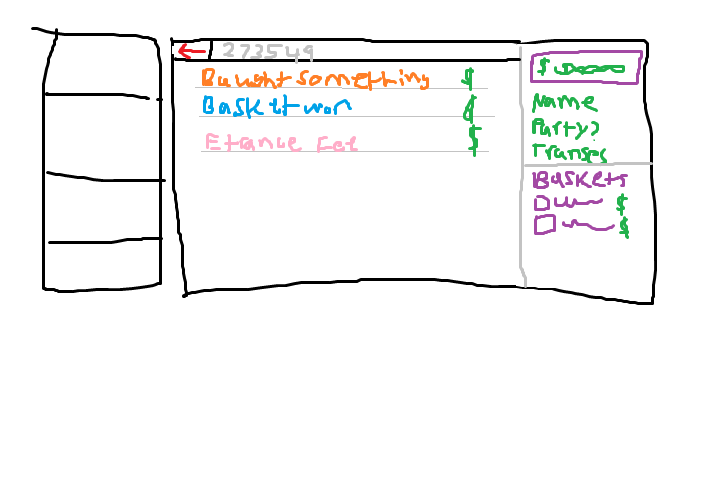 273549
Bought something $
Basket won $
Etrance Fee $
$
Name
Party?
Transes
Baskets
$
$